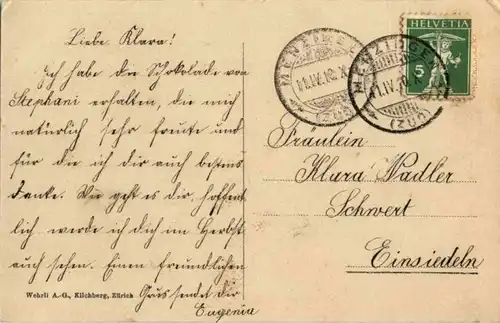 Liebe Klara!
Ich habe die Schokolade von
Stephani erhalten, die mich
natürlich sehr freute und
für die ich dir auch bestens
danke. Wie geht es dir, hoffent
lich, werde ich dich im Herbst
auch sehen. Einen freundlichen
Gruss sendet dir
Eugenia
Wehrli A.-G., Kilchberg, Zürich
MENZINGEN
11.IV.10.X
(ZUG)
MENZINGEN
11.IV.10
(ZUG)
HELVETIA
5
Fräulein
Klara Kadler
Schwert
Einsiedeln